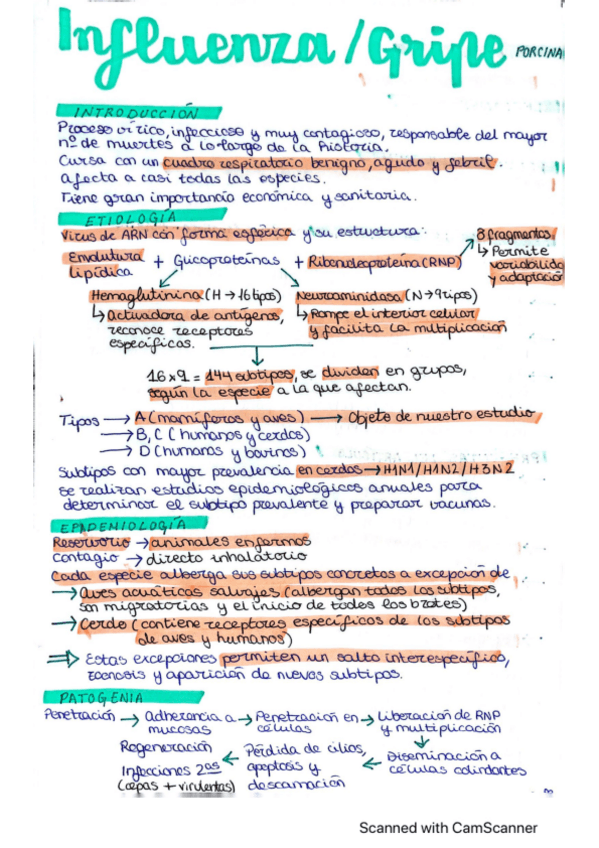 Influenza/Gripe PORCINA
INTRODUCCIÓN
Proceso vírico, infeccioso y muy contagioso, responsable del mayor
nº de muertes a lo largo de la historia.
Cursa con un cuadro respiratorio benigno, agudo y febril.
Afecta a casi todas las especies.
Tiene gran importancia económica y sanitaria.
ETIOLOGÍA
Virus de ARN con forma esférica y su estructura:
8 fragmentos
↳ Permite
variabilidad
y adaptación
Envoltura + Glicoproteínas + Ribonucleoproteína (RNP)
lipídica
Hemaglutinina (H → 16 tipos)
↳ Activadora de antígenos,
reconoce receptores
específicos.
Neuraminidasa (N → 9 tipos)
↳ Rompe el interior celular
y facilita la multiplicación
16 x 9 = 144 subtipos, se dividen en grupos,
según la especie a la que afectan.
Tipos → A (mamíferos y aves) → Objeto de nuestro estudio
→ B, C (humanos y cerdos)
→ D (humanos y bovinos)
Subtipos con mayor prevalencia en cerdos → H1N1/H1N2/H3N2
Se realizan estudios epidemiológicos anuales para
determinar el subtipo prevalente y preparar vacunas.
EPIDEMIOLOGÍA
Reservorio → animales enfermos
Contagio → directo inhalatorio
Cada especie alberga sus subtipos concretos a excepción de
→ Aves acuáticas salvajes (albergan todos los subtipos,
son migratorias y el inicio de todos los brotes)
→ Cerdo (contiene receptores específicos de los subtipos
de aves y humanos)
⇒ Estas excepciones permiten un salto interespecífico,
zoonosis y aparición de nuevos subtipos.
PATOGENIA
Penetración → Adherencia a → Penetración en → Liberación de RNP
mucosas células y multiplicación
Regeneración ← Pérdida de cilios, ← Diseminación a
Infecciones 2as apoptosis y células colindantes
(cepas + virulentas) descamación
3
Scanned with CamScanner